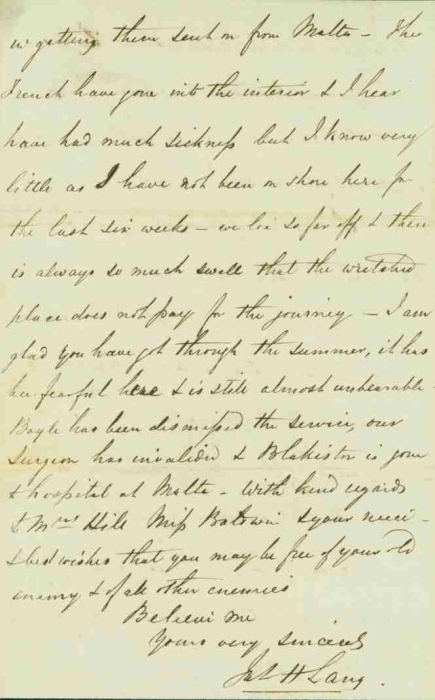 in getting them sent on from Malta - The
French have gone into the interior & I hear
have had much sickness but I know very
little as I have not been on shore here for
the last six weeks - we lie so far off & there
is always so much swell that the wretched
place does not pay for the journey - I am
glad you have got through the summer, it has
been fearful here & is still almost unbearable -
Boyle has been dismissed the service, our
Surgeon has invalided & Blakiston is gone
to hospital at Malta - With kind regards
to Mrs Hill Miss Baldwin & your niece -
& best wishes that you may be free of your old
enemy & of all other enemies
Believe me
Yours very sincerely
Jas H Lang.